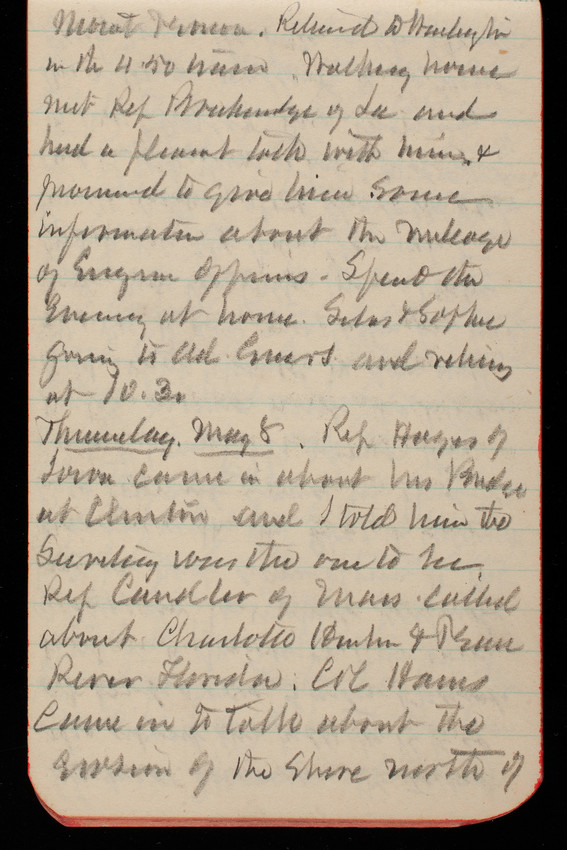 Mount Vernon. Returned to Washington
in the 4.50 train. Walking home
met Rep Breckinridge of La and
had a pleasant talk with him, &
promised to give him some
information about the mileage
of Engineer Officers - Spent the
Evening at home. Silas & Sophie
going to Ad. Greers and retiring
at 10.30
Thursday. May 8. Rep Hayes of
Iowa came in about his Bridge
at Clinton and I told him the
Secretary was the one to see.
Rep Candler of Mass called
about Charlotte Harbor & Pease
River Florida. Col Hains
came in to talk about the
erosion of the Shore north of